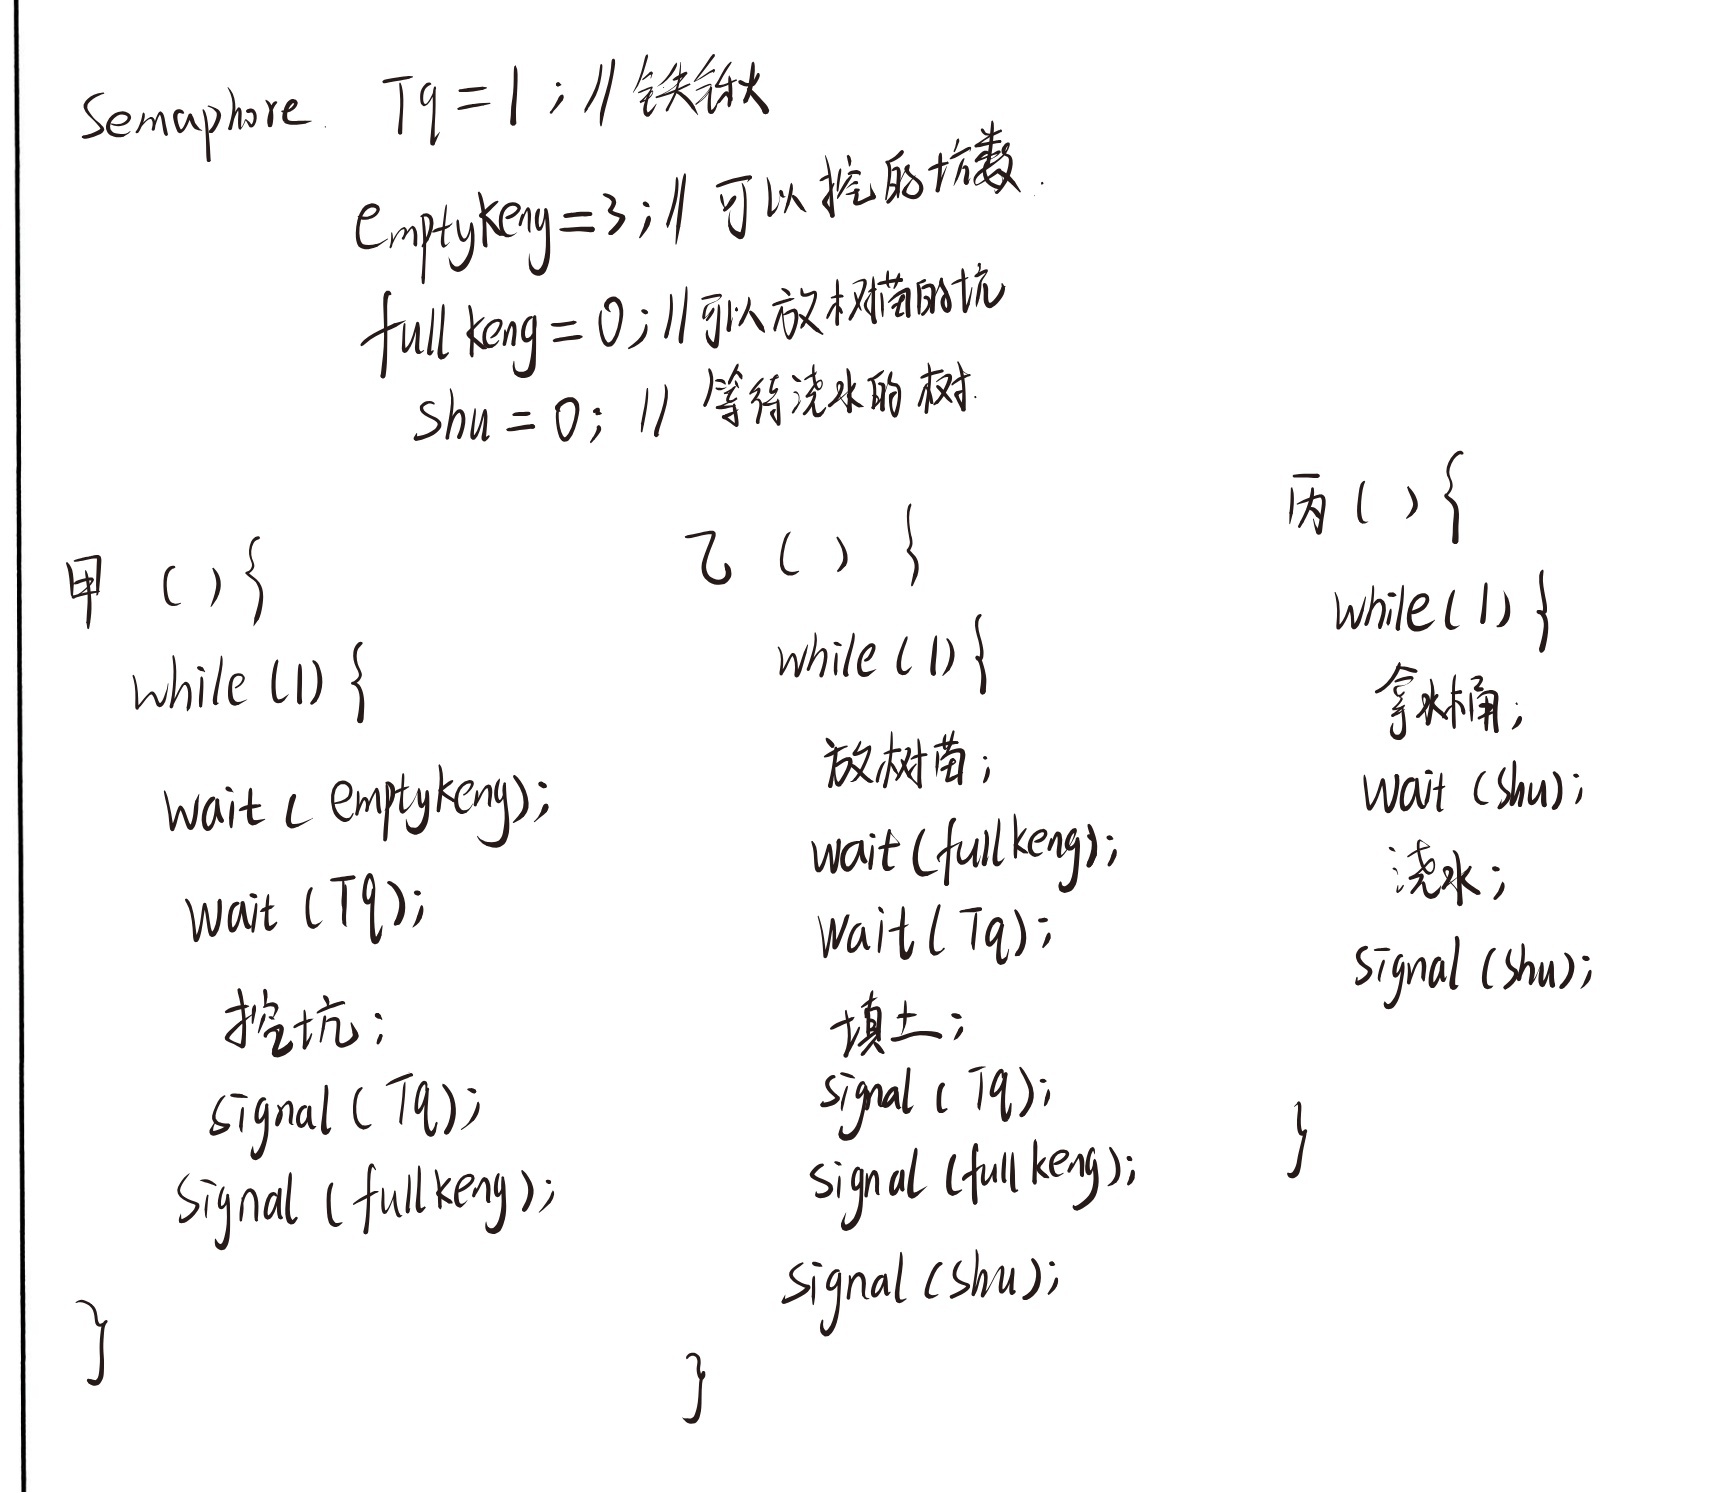 Semaphore Tq = 1 ; // 铁锹
emptykeng = 3 ; // 可以挖的坑数.
fullkeng = 0 ; // 可以放树苗的坑
shu = 0 ; // 等待浇水的树.
甲 ( ) {
while (1) {
wait ( emptykeng);
wait (Tq);
挖坑;
signal ( Tq);
signal (fullkeng);
}
乙 ( ) {
while (1) {
放树苗;
wait (fullkeng);
wait (Tq);
填土;
signal (Tq);
signal (fullkeng);
signal (shu);
}
丙 ( ) {
while (1) {
拿水桶;
wait (shu);
浇水;
signal (shu);
}